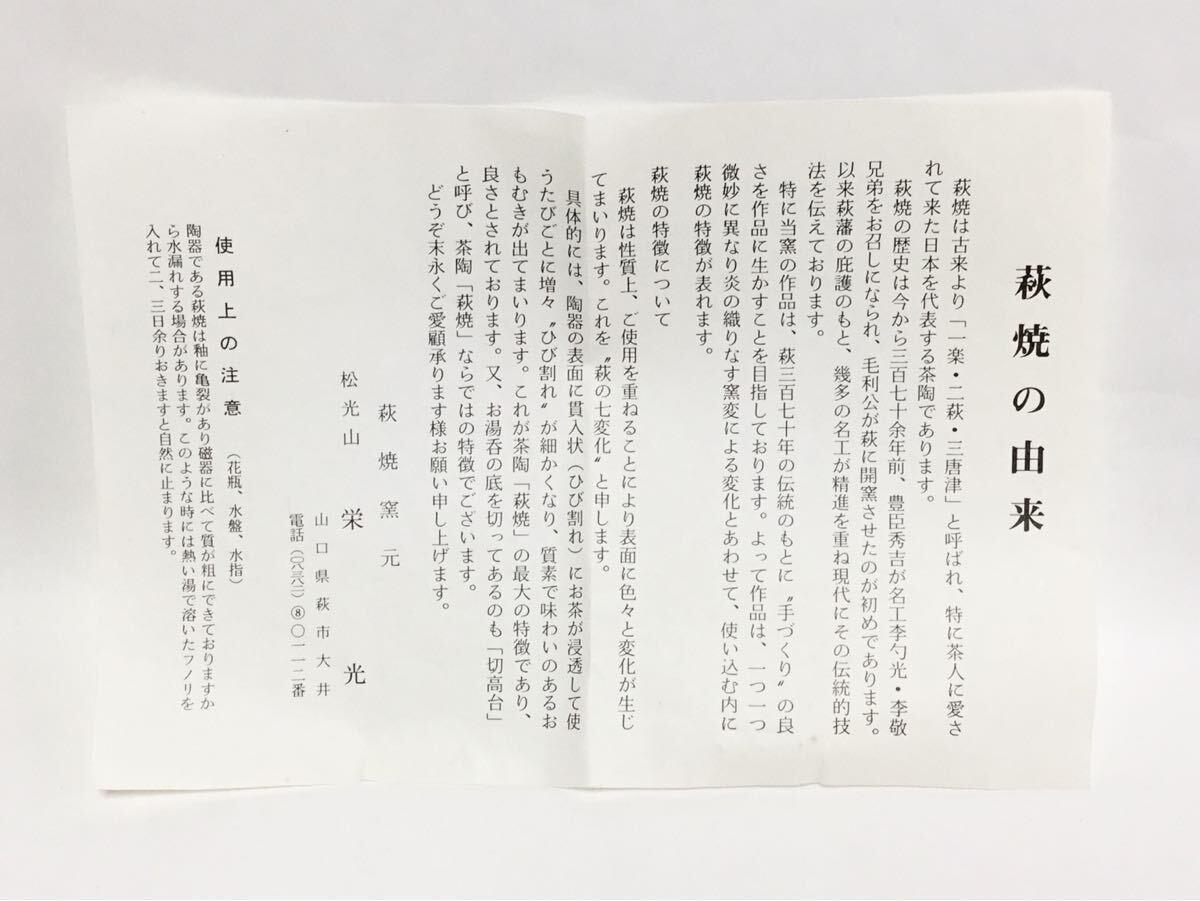 萩焼の由来
萩焼は古来より「一楽・二萩・三唐津」と呼ばれ、特に茶人に愛さ
れて来た日本を代表する茶陶であります。
萩焼の歴史は今から三百七十余年前、豊臣秀吉が名工李勺光・李敬
兄弟をお召しになられ、毛利公が萩に開窯させたのが初めであります。
以来萩藩の庇護のもと、幾多の名工が精進を重ね現代にその伝統的技
法を伝えております。
特に当窯の作品は、萩三百七十年の伝統のもとに〝手づくり〟の良
さを作品に生かすことを目指しております。よって作品は、一つ一つ
微妙に異なり炎の織りなす窯変による変化とあわせて、使い込む内に
萩焼の特徴が表れます。
萩焼の特徴について
萩焼は性質上、ご使用を重ねることにより表面に色々と変化が生じ
てまいります。これを〝萩の七変化〟と申します。
具体的には、陶器の表面に貫入状（ひび割れ）にお茶が浸透して使
うたびごとに増々〝ひび割れ〟が細かくなり、質素で味わいのあるお
もむきが出てまいります。これが茶陶「萩焼」の最大の特徴であり、
良さとされております。又、お湯呑の底を切ってあるのも「切高台」
と呼び、茶陶「萩焼」ならではの特徴でございます。
どうぞ末永くご愛顧承ります様お願い申し上げます。
萩焼窯元
松光山 栄光
山口県萩市大井
電話（〇八三八二）⑧〇一一二番
使用上の注意（花瓶、水盤、水指）
陶器である萩焼は釉に亀裂があり磁器に比べて質が粗にできておりますか
ら水漏れする場合があります。このような時には熱い湯で溶いたフノリを
入れて二、三日余りおきますと自然に止まります。